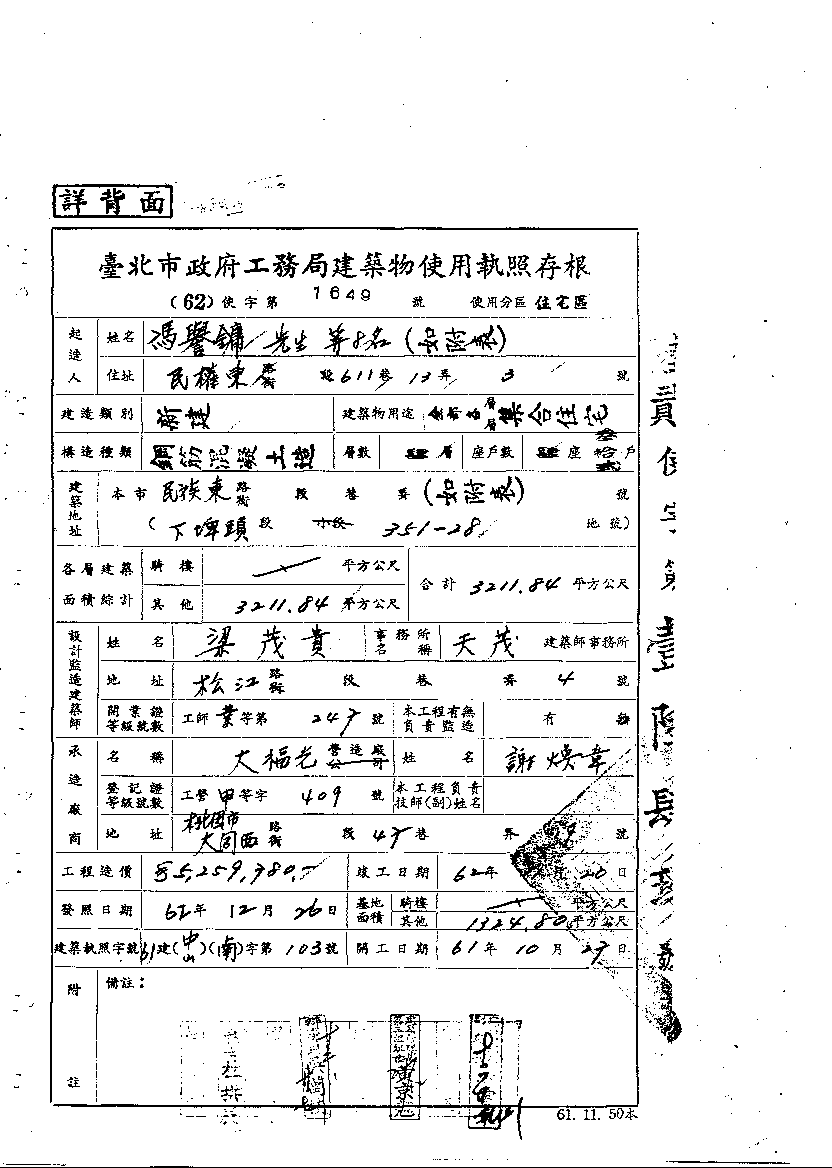 詳背面
臺北市政府工務局建築物使用執照存根
(62)使字第 1649 號 使用分區 住宅區
起造人 姓名 馮譽鏞 先生等8名(如附表)
住址 民權東路街 段611巷13弄 3 號
建造類別 新建 建築物用途 集合住宅
構造種類 鋼筋混凝土造 層數 層 座戶數 座 戶
建築地址 本市 民族東 路街 段 巷 弄(如附表) 號
(下埤頭 段 小段 351-28 地號)
各層建築面積綜計 騎樓 平方公尺 合計 3211.84 平方公尺
其他 3211.84 平方公尺
設計監造建築師 姓名 梁茂貴 事務所名稱 天茂 建築師事務所
地址 松江 路街 段 巷 弄 4 號
開業證等級號數 工師 業 等第 號 本工程有無負責監造 有 無
承造廠商 名稱 大福光 營造廠公司 姓名 謝煥章
登記證等級號數 工營 甲 等字 409 號 本工程負責技師(副)姓名
地址 桃園市大同西 路街 段 巷 弄 號
工程造價 5,259,380 竣工日期 62年 月 20日
發照日期 62年 12月 26日 基地面積 騎樓 平方公尺
其他 1324.80 平方公尺
建築執照字號 61建(中山)(南)字第 103號 開工日期 61年 10月 日
附註 備註:
61. 11. 50本